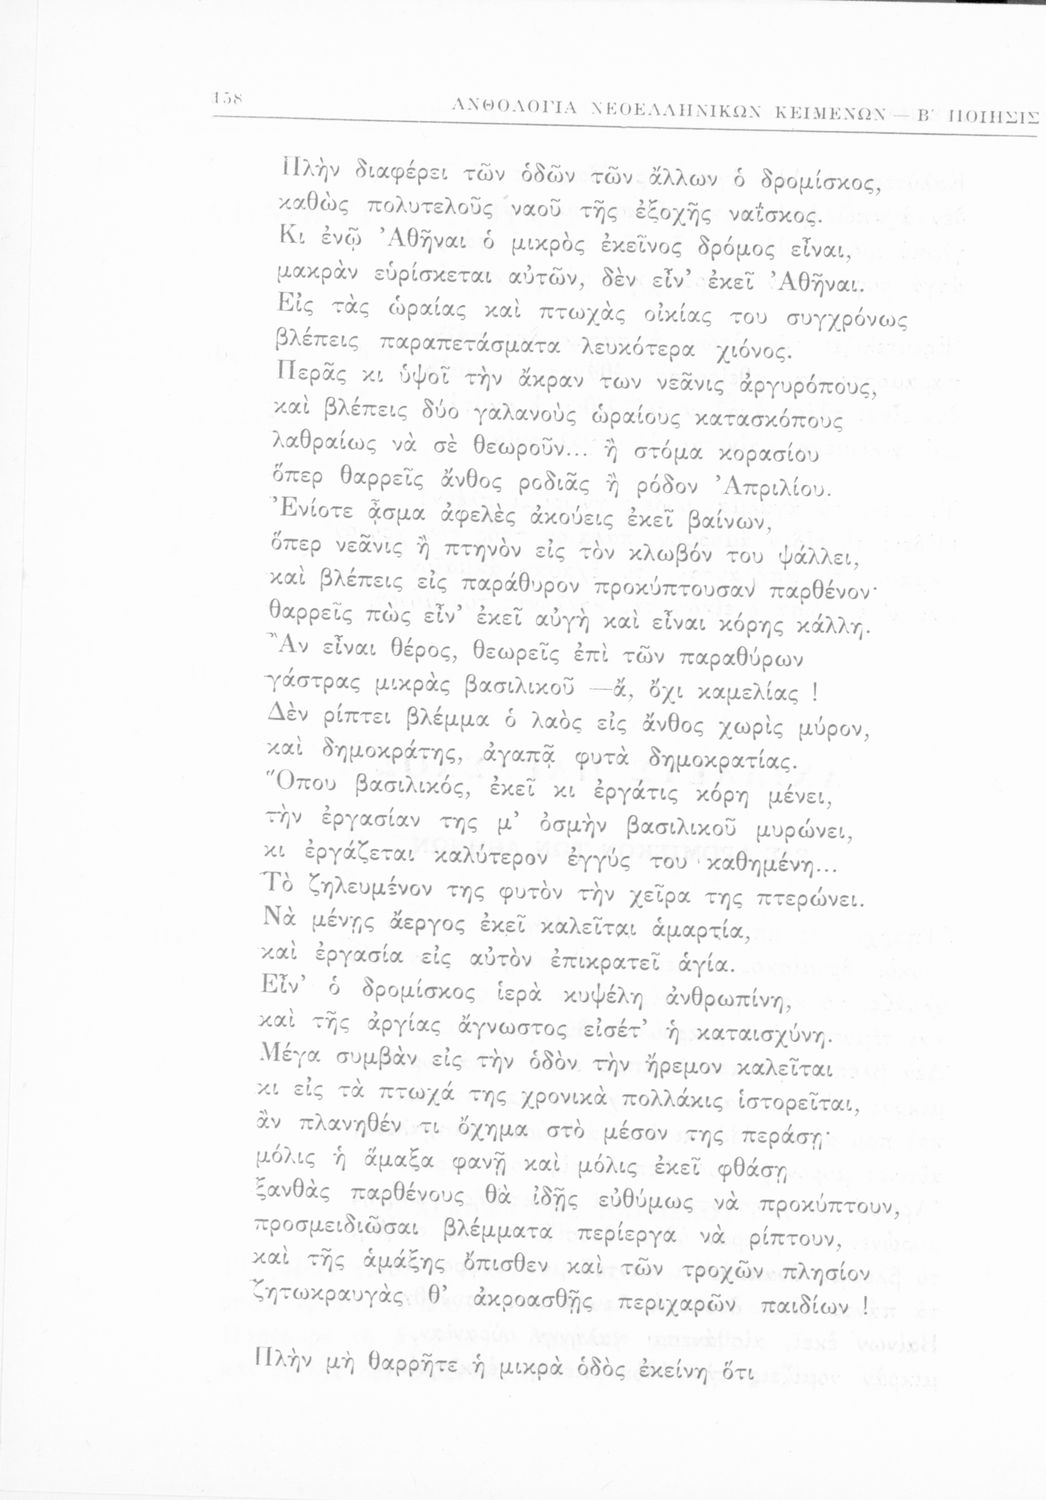 158
ΑΝΘΟΛΟΓΙΑ ΝΕΟΕΛΛΗΝΙΚΩΝ ΚΕΙΜΕΝΩΝ — Β΄ ΠΟΙΗΣΙΣ
Πλὴν διαφέρει τῶν ὁδῶν τῶν ἄλλων ὁ δρομίσκος,
καθὼς πολυτελοῦς ναοῦ τῆς ἐξοχῆς ναΐσκος.
Κι ἐνῷ Ἀθῆναι ὁ μικρὸς ἐκεῖνος δρόμος εἶναι,
μακρὰν εὑρίσκεται αὐτῶν, δὲν εἶν’ ἐκεῖ Ἀθῆναι.
Εἰς τὰς ὡραίας καὶ πτωχὰς οἰκίας του συγχρόνως
βλέπεις παραπετάσματα λευκότερα χιόνος.
Περᾶς κι ὑψοῖ τὴν ἄκραν των νεᾶνις ἀργυρόπους,
καὶ βλέπεις δύο γαλανοὺς ὡραίους κατασκόπους
λαθραίως νὰ σὲ θεωροῦν... ἢ στόμα κορασίου
ὅπερ θαρρεῖς ἄνθος ροδιᾶς ἢ ρόδον Ἀπριλίου.
Ἐνίοτε ᾆσμα ἀφελὲς ἀκούεις ἐκεῖ βαίνων,
ὅπερ νεᾶνις ἢ πτηνὸν εἰς τὸν κλωβόν του ψάλλει,
καὶ βλέπεις εἰς παράθυρον προκύπτουσαν παρθένον·
θαρρεῖς πὼς εἶν’ ἐκεῖ αὐγὴ καὶ εἶναι κόρης κάλλη.
Ἂν εἶναι θέρος, θεωρεῖς ἐπὶ τῶν παραθύρων
γάστρας μικρὰς βασιλικοῦ —ἄ, ὄχι καμελίας !
Δὲν ρίπτει βλέμμα ὁ λαὸς εἰς ἄνθος χωρὶς μύρον,
καὶ δημοκράτης, ἀγαπᾷ φυτὰ δημοκρατίας.
Ὅπου βασιλικός, ἐκεῖ κι ἐργάτις κόρη μένει,
τὴν ἐργασίαν της μ’ ὀσμὴν βασιλικοῦ μυρώνει,
κι ἐργάζεται καλύτερον ἐγγύς του καθημένη...
Τὸ ζηλευμένον της φυτὸν τὴν χεῖρα της πτερώνει.
Νὰ μένῃς ἄεργος ἐκεῖ καλεῖται ἁμαρτία,
καὶ ἐργασία εἰς αὐτὸν ἐπικρατεῖ ἁγία.
Εἶν’ ὁ δρομίσκος ἱερὰ κυψέλη ἀνθρωπίνη,
καὶ τῆς ἀργίας ἄγνωστος εἰσέτ’ ἡ καταισχύνη.
Μέγα συμβὰν εἰς τὴν ὁδὸν τὴν ἤρεμον καλεῖται
κι εἰς τὰ πτωχά της χρονικὰ πολλάκις ἱστορεῖται,
ἂν πλανηθέν τι ὄχημα στὸ μέσον της περάσῃ·
μόλις ἡ ἅμαξα φανῇ καὶ μόλις ἐκεῖ φθάσῃ
ξανθὰς παρθένους θὰ ἰδῇς εὐθύμως νὰ προκύπτουν,
προσμειδιῶσαι βλέμματα περίεργα νὰ ρίπτουν,
καὶ τῆς ἁμάξης ὄπισθεν καὶ τῶν τροχῶν πλησίον
ζητωκραυγὰς θ’ ἀκροασθῇς περιχαρῶν παιδίων !
Πλὴν μὴ θαρρῆτε ἡ μικρὰ ὁδὸς ἐκείνη ὅτι